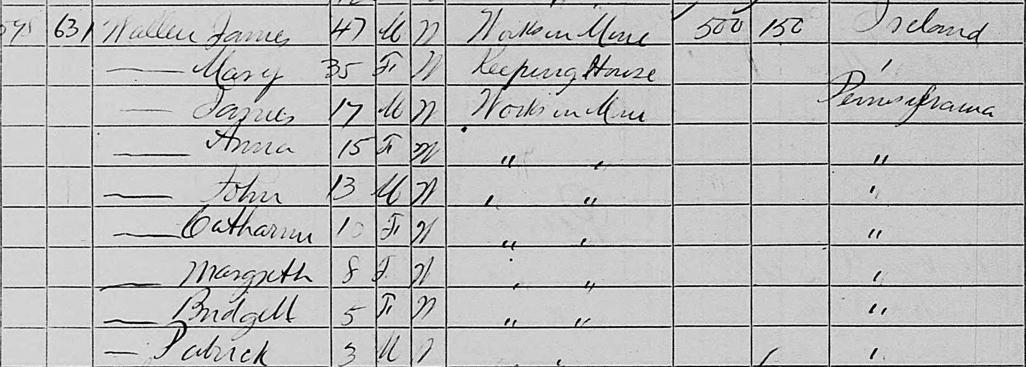 631 Wallen James 47 M W Works in Mine 500 150 Ireland
— Mary 35 F W Keeping House "
— James 17 M W Works in Mine Pennsylvania
— Anna 15 F W " " "
— John 13 M W " " "
— Catharine 10 F W " " "
— Margreth 8 F W " " "
— Bridgett 5 F W " " "
— Patrick 3 M W " "